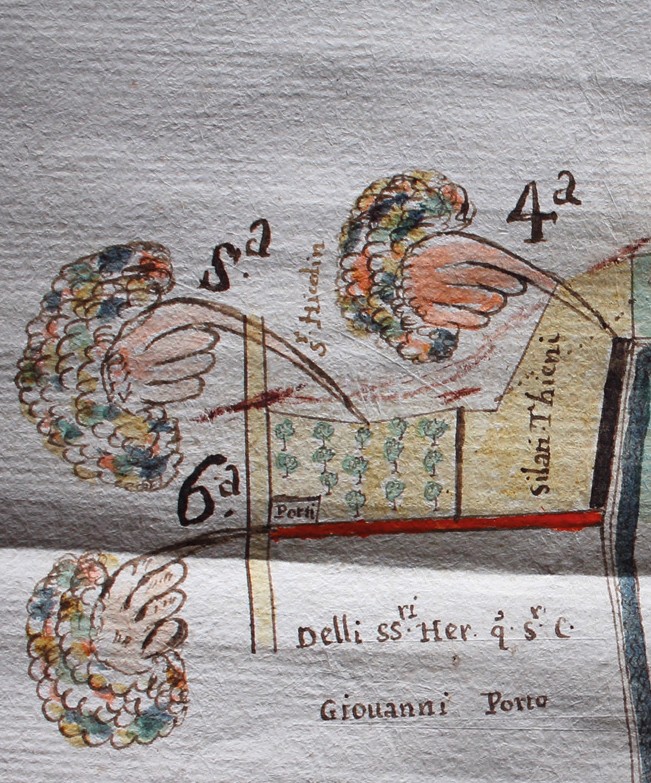 4ª
5.ª
Sʳ Nicolin
Silan Thieni
6.ª
Porti
Delli SS.ʳⁱ Her. q̃. Sʳ C.
Giouanni Porto